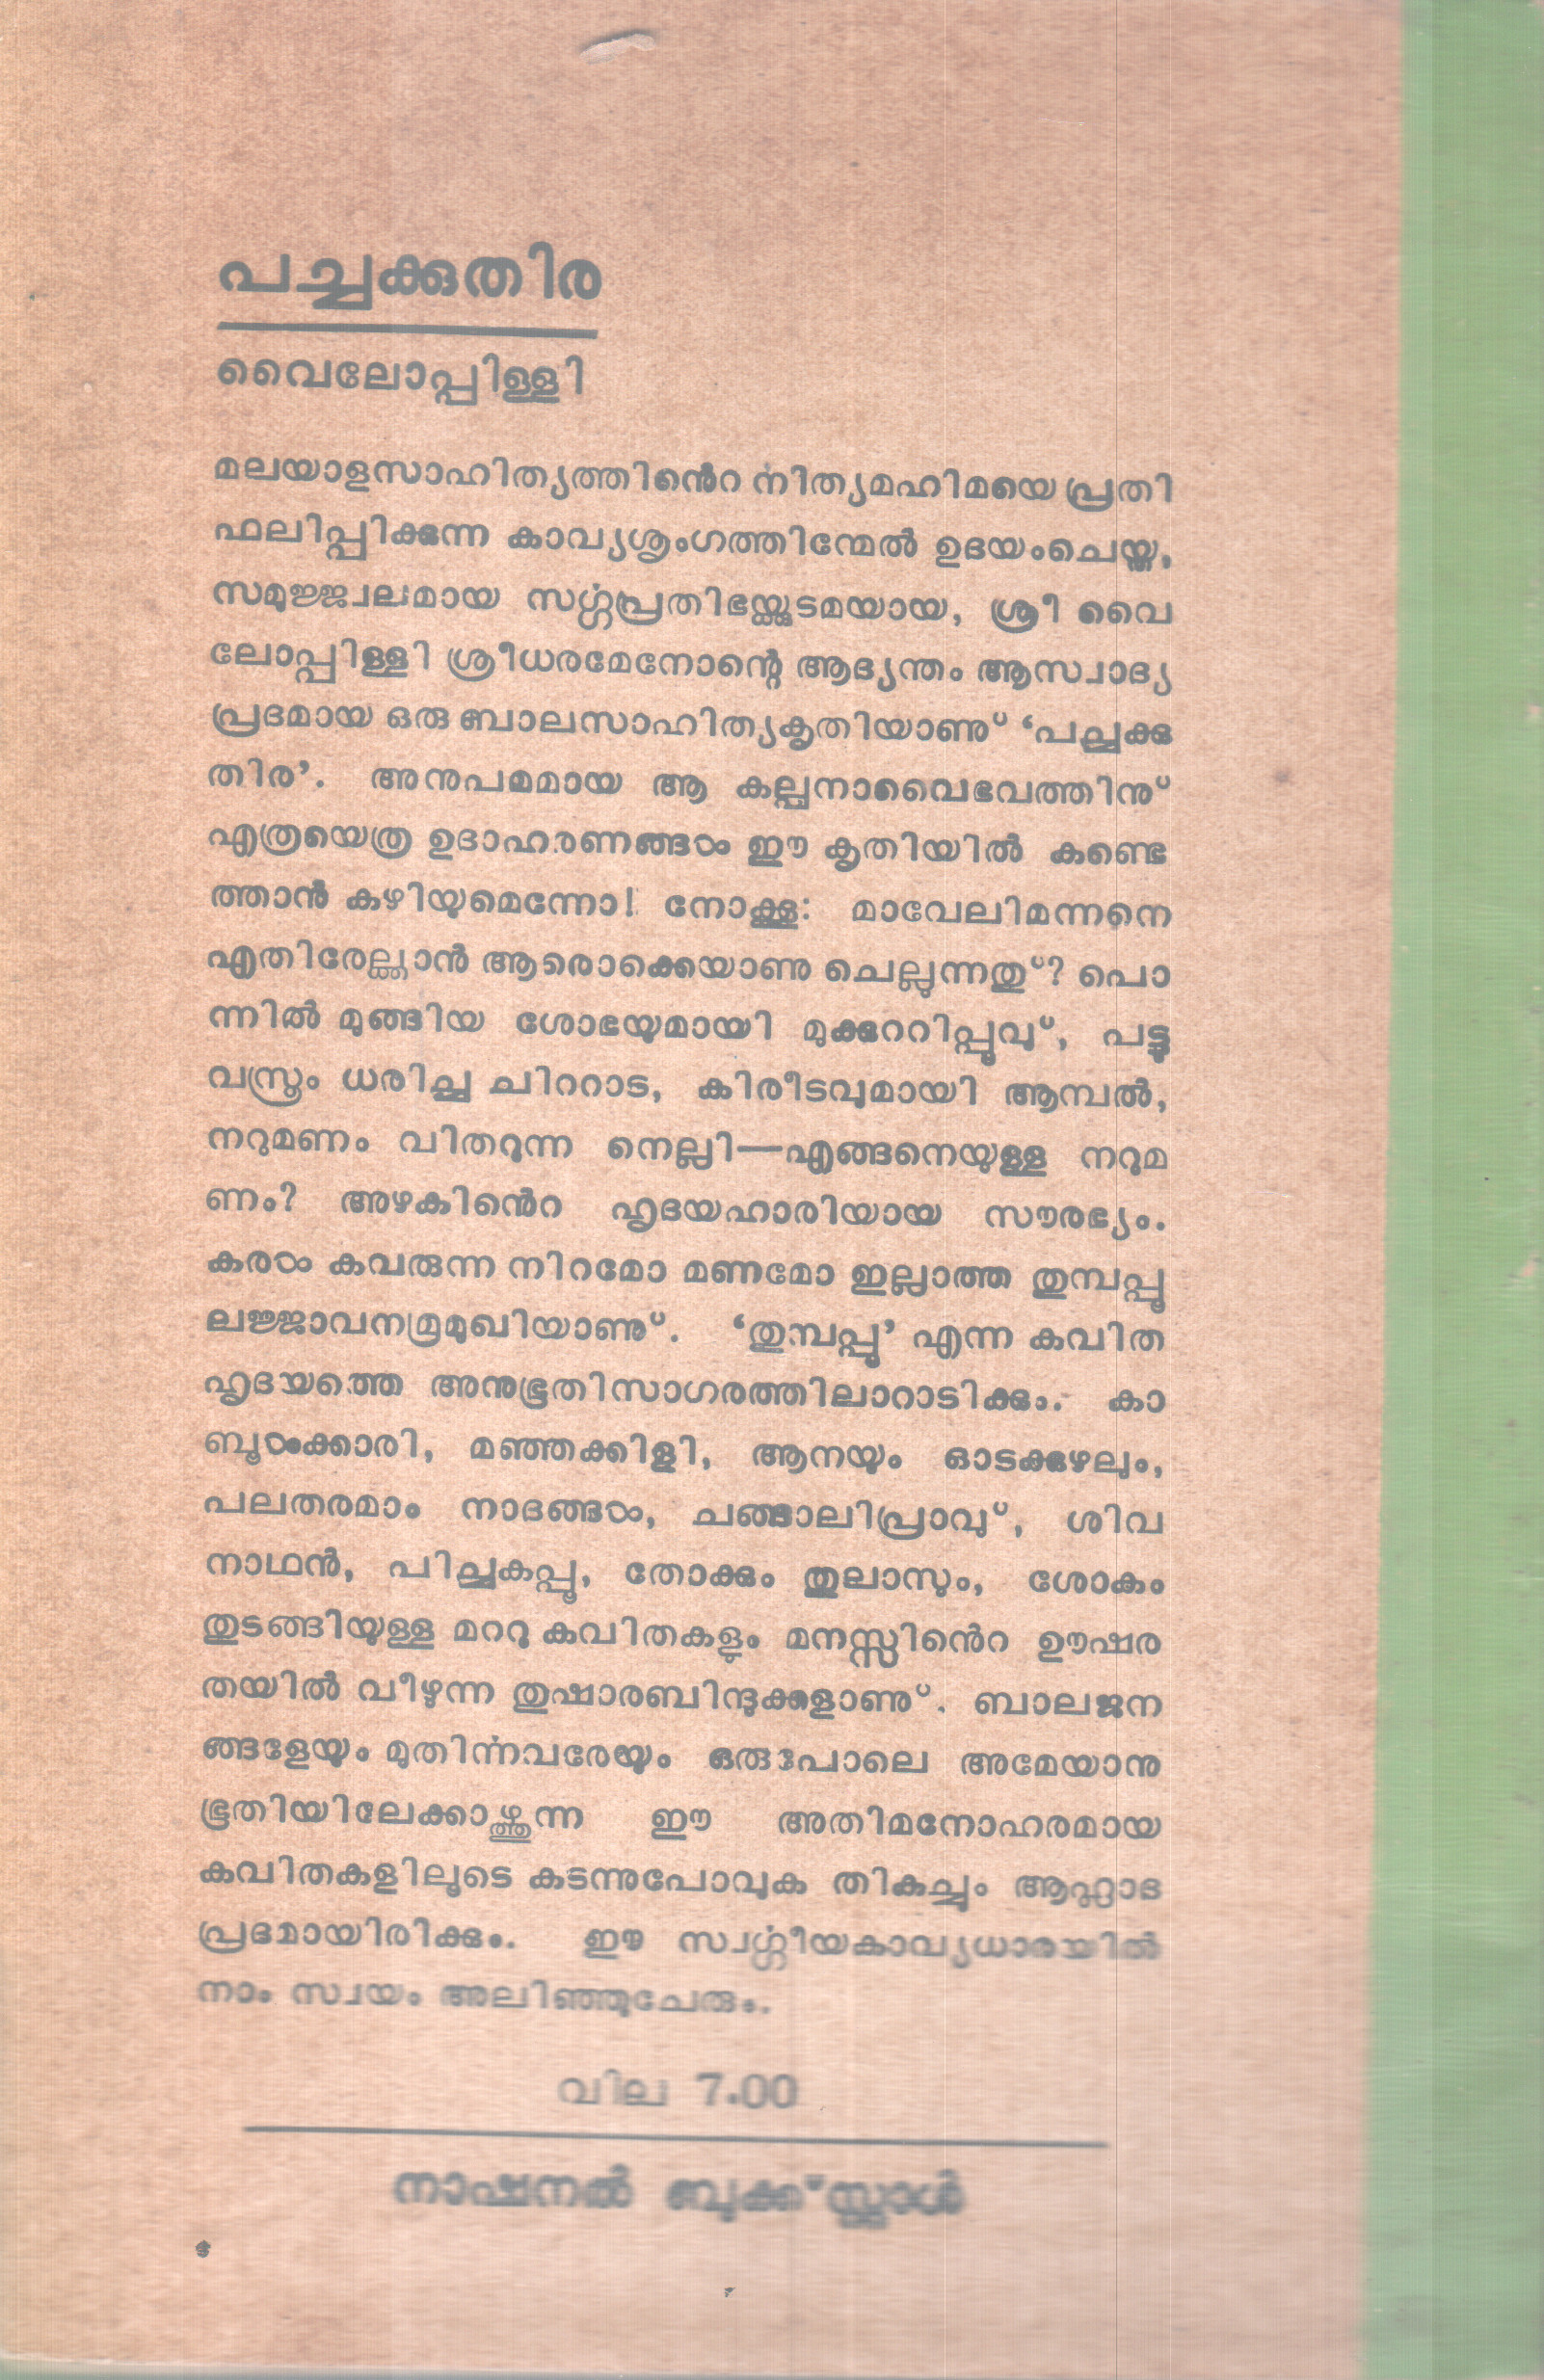 പച്ചക്കുതിര
വൈലോപ്പിള്ളി
മലയാളസാഹിത്യത്തിൻെറ നിത്യമഹിമയെ പ്രതി
ഫലിപ്പിക്കുന്ന കാവ്യശൃംഗത്തിന്മേൽ ഉദയംചെയ്ത,
സമുജ്ജ്വലമായ സൎഗ്ഗപ്രതിഭയ്ക്കുടമയായ, ശ്രീ വൈ
ലോപ്പിള്ളി ശ്രീധരമേനോന്റെ ആദ്യന്തം ആസ്വാദ്യ
പ്രദമായ ഒരു ബാലസാഹിത്യകൃതിയാണു് ‘പച്ചക്കു
തിര’. അനുപമമായ ആ കല്പനാവൈഭവത്തിനു്
എത്രയെത്ര ഉദാഹരണങ്ങൾ ഈ കൃതിയിൽ കണ്ടെ
ത്താൻ കഴിയുമെന്നോ! നോക്കൂ: മാവേലിമന്നനെ
എതിരേല്ക്കാൻ ആരൊക്കെയാണു ചെല്ലുന്നതു്? പൊ
ന്നിൽ മുങ്ങിയ ശോഭയുമായി മുക്കുററിപ്പൂവു്, പട്ടു
വസ്ത്രം ധരിച്ച ചിററാട, കിരീടവുമായി ആമ്പൽ,
നറുമണം വിതറുന്ന നെല്ലി—എങ്ങനെയുള്ള നറുമ
ണം? അഴകിൻെറ ഹൃദയഹാരിയായ സൗരഭ്യം.
കരൾ കവരുന്ന നിറമോ മണമോ ഇല്ലാത്ത തുമ്പപ്പൂ
ലജ്ജാവനമ്രമുഖിയാണു്. ‘തുമ്പപ്പൂ’ എന്ന കവിത
ഹൃദയത്തെ അനുഭൂതിസാഗരത്തിലാറാടിക്കും. കാ
ബൂൾക്കാരി, മഞ്ഞക്കിളി, ആനയും ഓടക്കുഴലും,
പലതരമാം നാദങ്ങൾ, ചങ്ങാലിപ്രാവു്, ശിവ
നാഥൻ, പിച്ചകപ്പൂ, തോക്കും തുലാസും, ശോകം
തുടങ്ങിയുള്ള മററു കവിതകളും മനസ്സിൻെറ ഊഷര
തയിൽ വീഴുന്ന തുഷാരബിന്ദുക്കളാണു്. ബാലജന
ങ്ങളേയും മുതിൎന്നവരേയും ഒരുപോലെ അമേയാനു
ഭൂതിയിലേക്കാഴ്ത്തുന്ന ഈ അതിമനോഹരമായ
കവിതകളിലൂടെ കടന്നുപോവുക തികച്ചും ആഹ്ലാദ
പ്രദമായിരിക്കും. ഈ സ്വൎഗ്ഗീയകാവ്യധാരയിൽ
നാം സ്വയം അലിഞ്ഞുചേരും.
വില 7.00
നാഷനൽ ബുക്ക്സ്റ്റാൾ